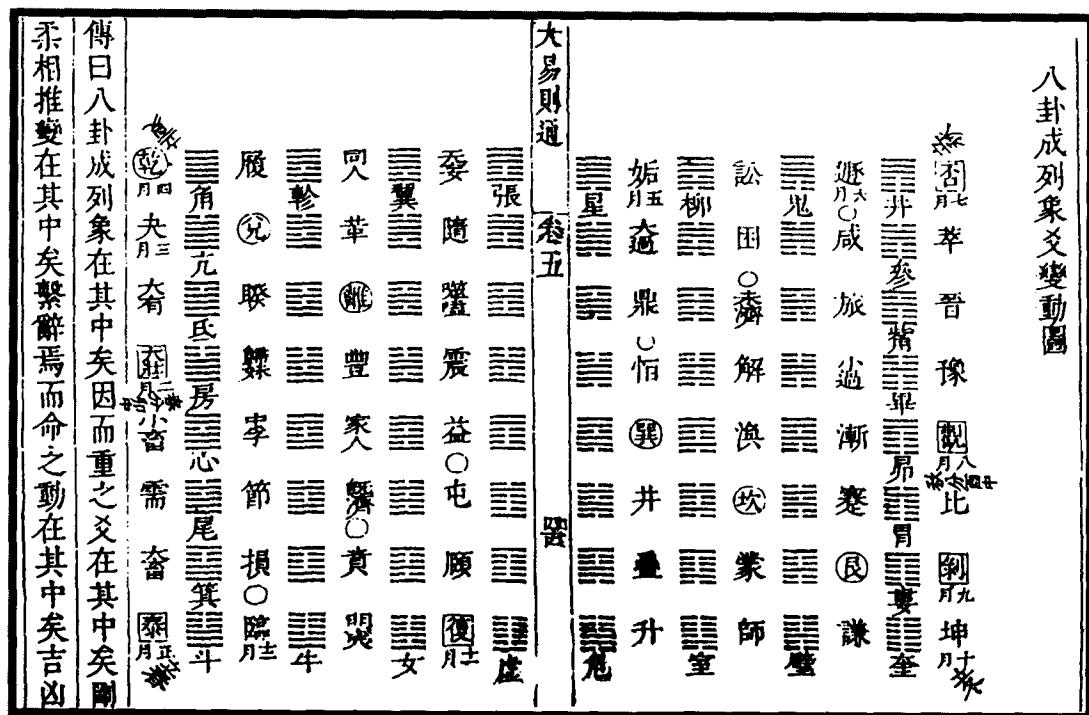 八卦成列象爻變動圖
否 七月 萃 晉 豫 觀 八月 比 剝 九月 坤 十月
井 參 觜 畢 昴 胃 婁 奎
遯 六月 咸 旅 小過 漸 蹇 艮 謙
鬼 壁
訟 困 未濟 解 渙 坎 蒙 師
柳 室
姤 五月 大過 鼎 恒 巽 井 蠱 升
星 危
大易則通 卷五
張 虛
无妄 隨 噬嗑 震 益 屯 頤 復 十一月
翼 女
同人 革 離 豐 家人 既濟 賁 明夷
軫 牛
履 兌 睽 歸妹 中孚 節 損 臨 十二月
角 亢 氐 房 心 尾 箕 斗
乾 四月 夬 三月 大有 大壯 二月 小畜 需 大畜 泰 正月
傳曰八卦成列象在其中矣因而重之爻在其中矣剛
柔相推變在其中矣繫辭焉而命之動在其中矣吉凶